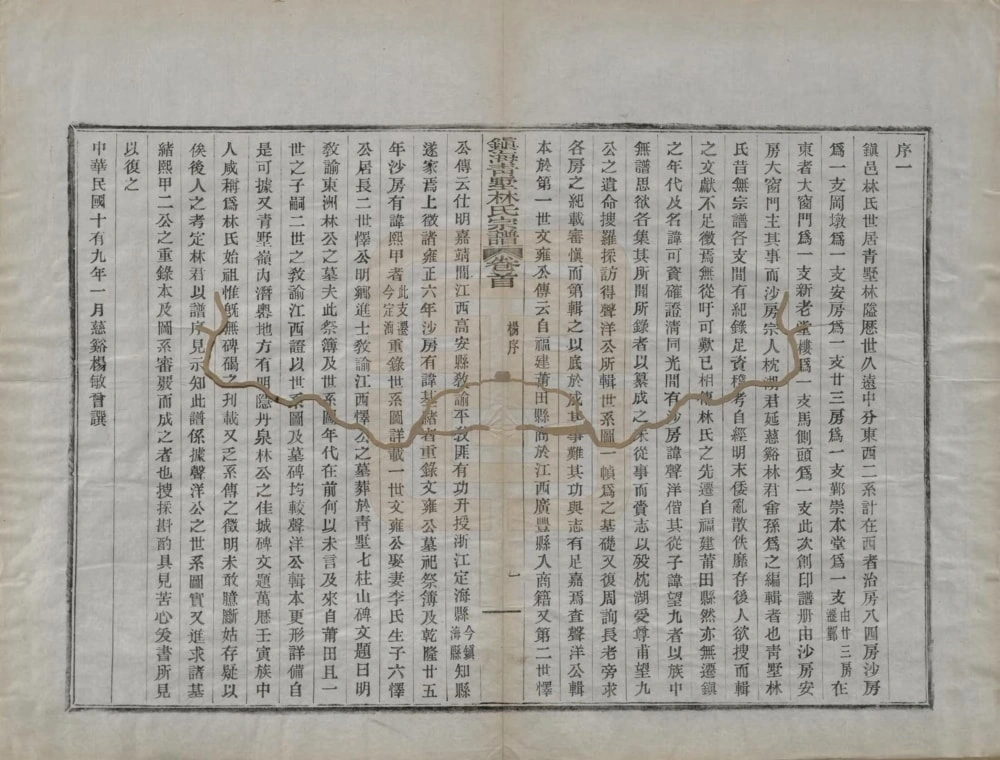 序一
鎮邑林氏世居青墅林隘歷世久遠中分東西二系計在西者治房八四房沙房
為一支周墩為一支安房為一支廿三房為一支鄞崇本堂為一支由廿三房遷鄞在
東者大窗門為一支新老堂樓為一支馬側頭為一支此次創印譜册由沙房安
房大窗門主其事而沙房宗人枕湖君延慈谿林君畬孫為之編輯者也靑墅林
氏昔無宗譜各支間有紀錄足資稽考自經明末倭亂散佚靡存後人欲搜而輯
之文獻不足徵焉無從吁可歎已相傳林氏之先遷自福建莆田縣然亦無遷鎮
之年代及名諱可資確證淸同光間有沙房諱聲洋偕其從子諱望九者以族中
無譜思欲各集其所聞所錄者以纂成之未從事而賫志以歿枕湖受尊甫望九
公之遺命搜羅採訪得聲洋公所輯世系圖一幀為之基礎又復周詢長老旁求
各房之紀載審愼而第輯之以底於成其事難其功與志有足嘉焉查聲洋公輯
本於第一世文雍公傳云自福建莆田縣商於江西廣豐縣入商籍又第二世懌
鎮海靑墅林氏宗譜 卷首 楊序 一
公傳云仕明嘉靖間江西高安縣敎諭平敎匪有功升授浙江定海縣今鎮海縣知縣
遂家焉上徵諸雍正六年沙房有諱其緒者重錄文雍公墓祀祭簿及乾隆廿五
年沙房有諱熙甲者此支遷今定海重錄世系圖詳載一世文雍公娶妻李氏生子六懌
公居長二世懌公明鄉進士敎諭江西懌公之墓葬於靑墅七柱山碑文題曰明
敎諭東洲林公之墓夫此祭簿及世系圖年代在前何以未言及來自莆田且一
世之子嗣二世之敎諭江西證以世系圖及墓碑均較聲洋公輯本更形詳備自
是可據又青墅嶺內潛輿地方有明隱丹泉林公之佳城碑文題萬曆壬寅族中
人咸稱為林氏始祖惟旣無碑碣之刊載又乏系傳之徵明未敢臆斷姑存疑以
俟後人之考定林君以譜序見示知此譜係據聲洋公之世系圖實又進求諸基
緒熙甲二公之重錄本及圖系審覈而成之者也搜採斟酌具見苦心爰書所見
以復之
中華民國十有九年一月慈谿楊敏曾譔